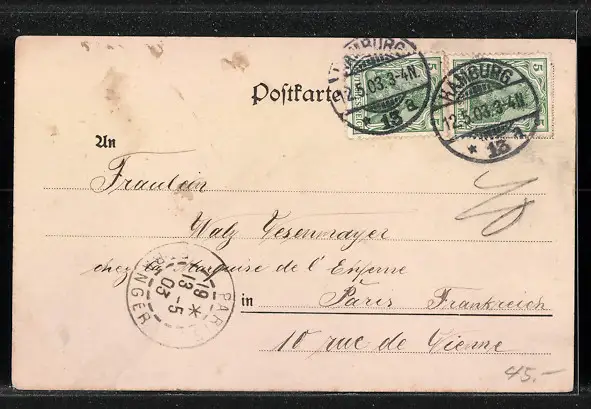 HAMBURG
12.5.03.3-4N.
* 13 a
HAMBURG
12.5.03.3-4N.
* 13 a
5
5
Postkarte
An
Fraulein
Walz Gesenmayer
chez la Marquise de l'Enferne
in Paris Frankreich
10 rue de Vienne
PARIS
ETRANGER
19 *
13 - 5
03
45.-